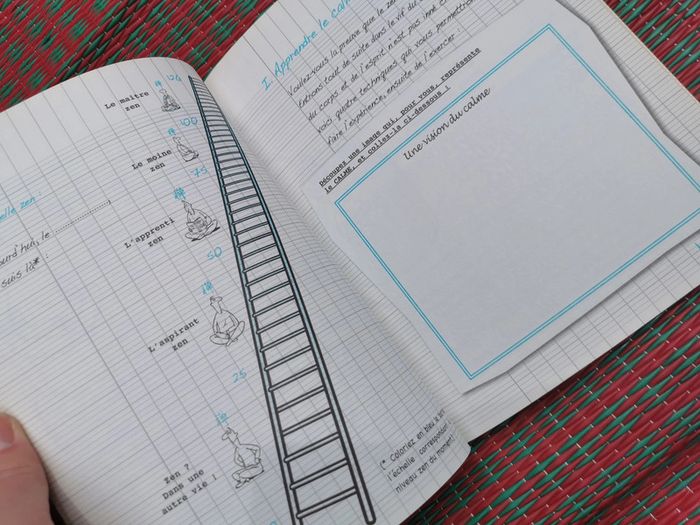 elle zen :
ourd'hui, le
suis là* :
120
Le maître
zen
100
Le moine
zen
75
L'apprenti
zen
50
L'aspirant
zen
25
Zen ?
Dans une
autre vie !
0
(* Coloriez en bleu le
l'échelle correspondant
niveau zen du moment)
I. Apprendre le calme
Voulez-vous la preuve que le ze
Entrons tout de suite dans le vif du
du corps et de l'esprit n'est pas inné c
voici quatre techniques qui vous permettron
faire l'expérience, ensuite de l'exercer
Découpez une image qui, pour vous, représente
le CALME, et collez-la ci-dessous :
Une vision du calme